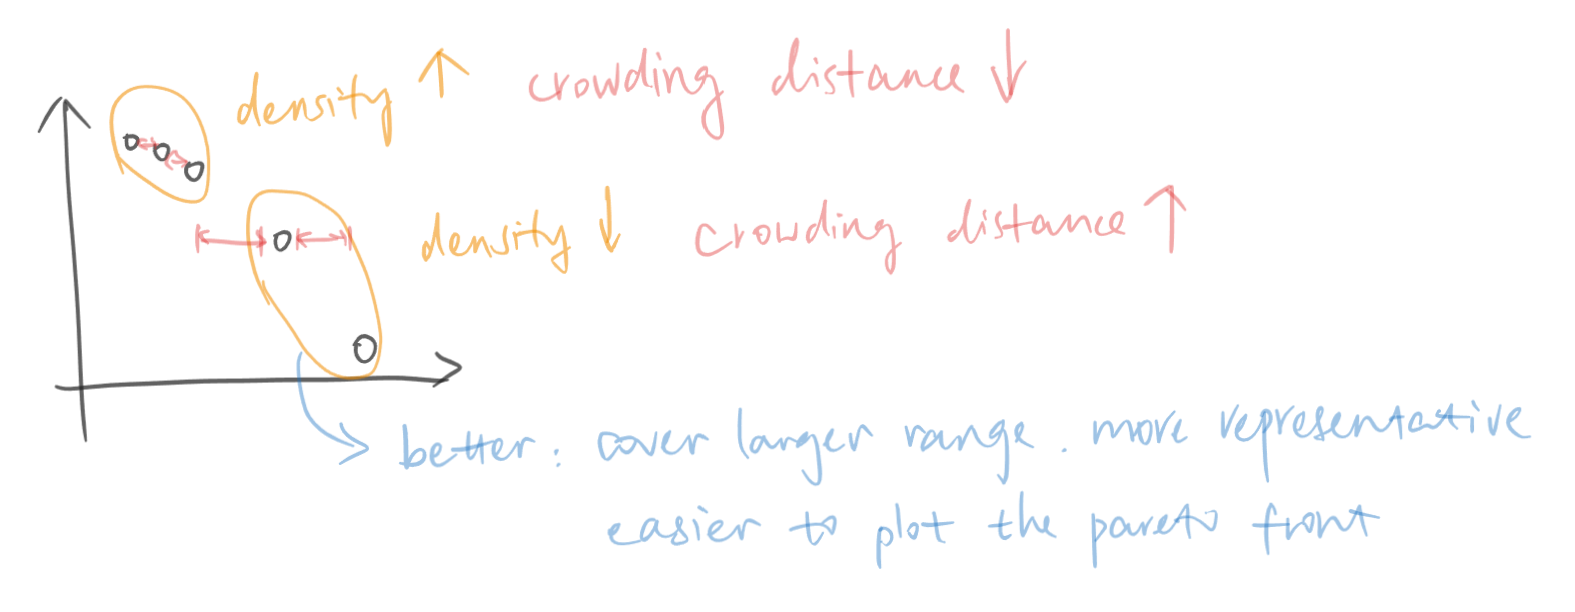 density ↑ crowding distance ↓
density ↓ crowding distance ↑
better: cover larger range. more representative
easier to plot the pareto front